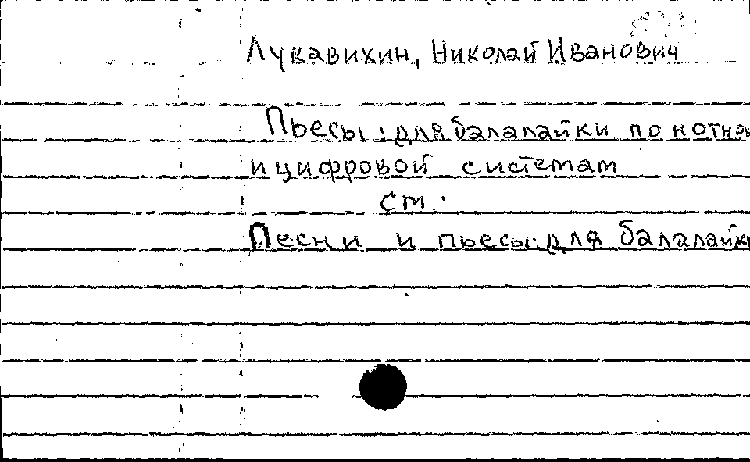 Лукавихин, Николай Иванович
Пьесы: для балалайки по нотна
и цифровой системам
см.
Песни и пьесы: для балалайк